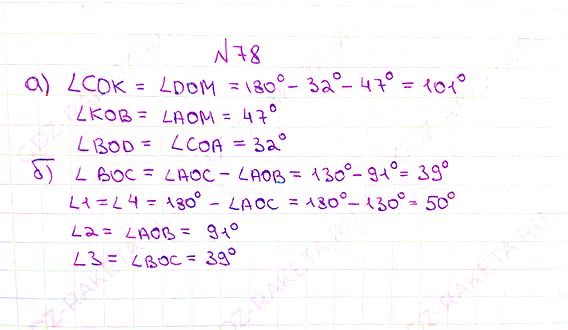 N78
а) ∠COK = ∠DOM = 180° - 32° - 47° = 101°
∠KOB = ∠AOM = 47°
∠BOD = ∠COA = 32°
б) ∠BOC = ∠AOC - ∠AOB = 130° - 91° = 39°
∠1 = ∠4 = 180° - ∠AOC = 180° - 130° = 50°
∠2 = ∠AOB = 91°
∠3 = ∠BOC = 39°
GDZ-RAKETA.RU